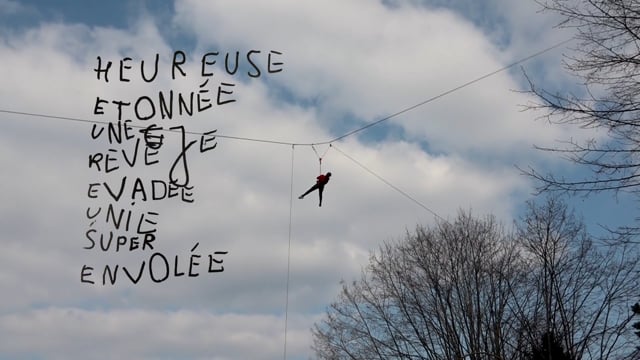 HEUREUSE
ETONNÉE
UNE
REVÉ
EVADÉE
UNILE
SUPER
ENVOLÉE